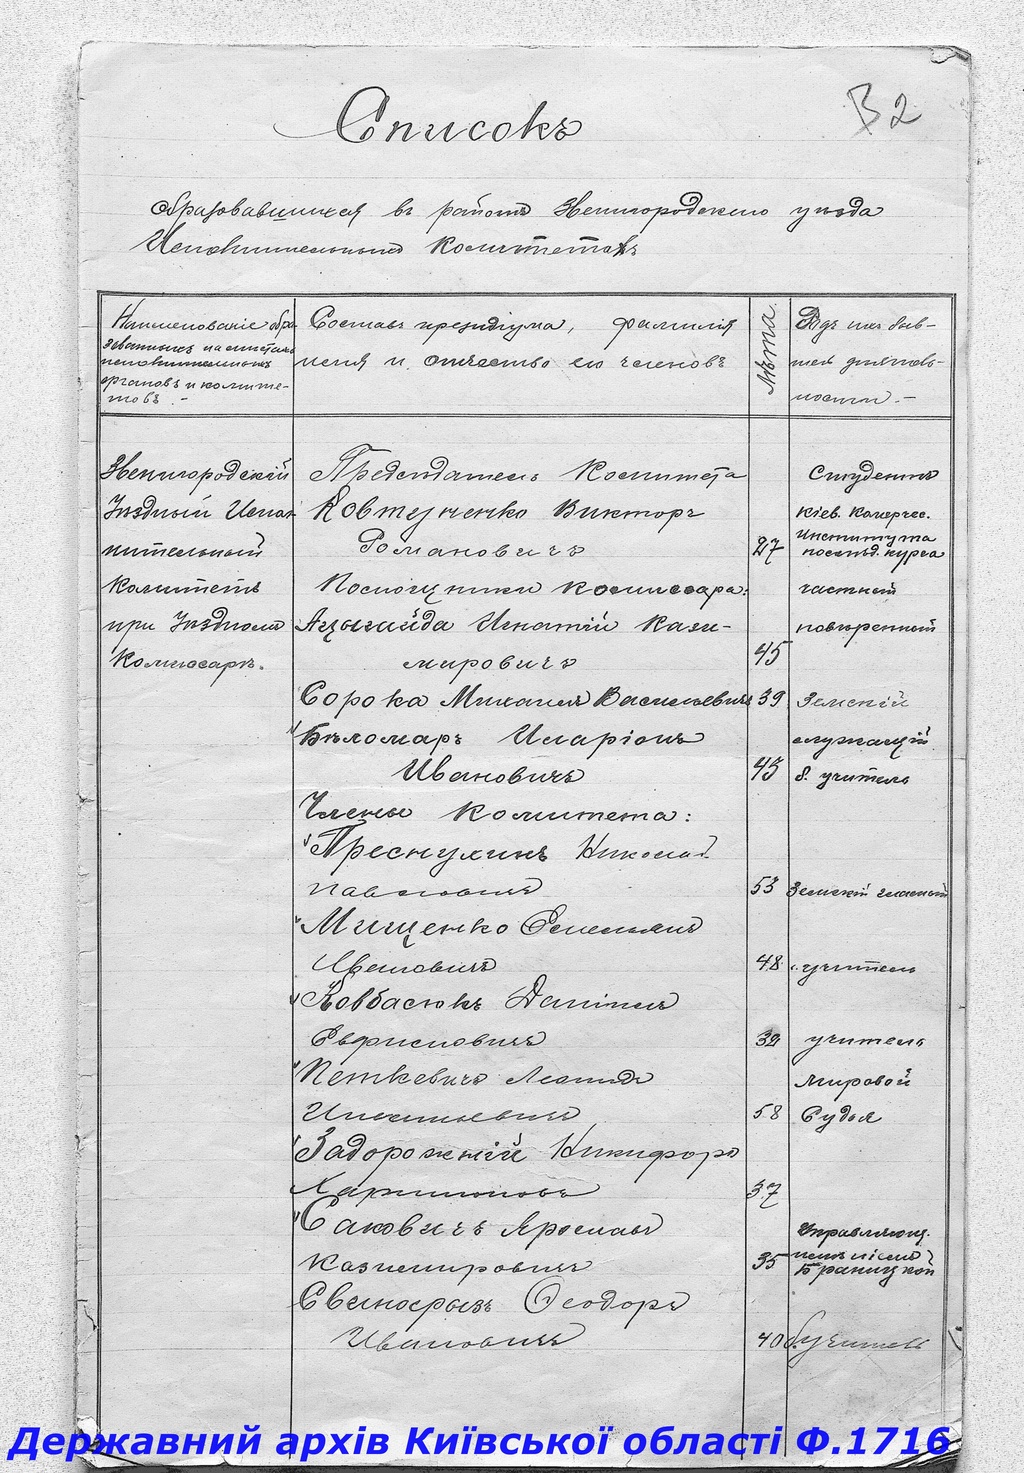 Списокъ
В 2
образовавшихся въ районѣ Звенигородскаго уѣзда
Исполнительныхъ Комитетовъ
Наименованіе обра-
зованныхъ на мѣстахъ
исполнительныхъ
органовъ и комите-
товъ. -
Составъ президіума, фамилія
имя и отчество его членовъ
Лѣта
Родъ ихъ быв-
шей дѣятель-
ности. -
Звенигородскій
Уѣздный Испол-
нительный
Комитетъ
при Уѣздномъ
Комиссарѣ.
Предсѣдатель Комитета
Ковтуненко Викторъ
Романовичъ
27
Студентъ
Кіев. Комерчес.
Института
послѣд. курса
Помощники комиссара:
Игнатій Кази-
мировичъ
45
частный
повѣренный
Сорока Михаилъ Васильевичъ
39
Земскій
служащій
Бѣломаръ Иларіонъ
Ивановичъ
43
б. учитель
Члены комитета:
Преснухинъ Николай
Павловичъ
53
Земскій гласный
Мищенко Емельянъ
Ивановичъ
48
учитель
Ковбасюкъ Даніилъ
Евфимовичъ
32
учитель
Петкевичъ Леонидъ
Игнатьевичъ
58
Мировой
Судья
Задорожній Никифоръ
Ларіоновъ
37
Саковичъ Ярославъ
Казимировичъ
35
Управляющ.
имѣніемъ
Браницкой
Свинобразъ Ѳеодоръ
Ивановичъ
40
б. учитель
Державний архів Київської області Ф.1716